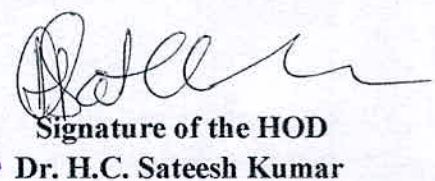 Signature of the HOD
Dr. H.C. Sateesh Kumar